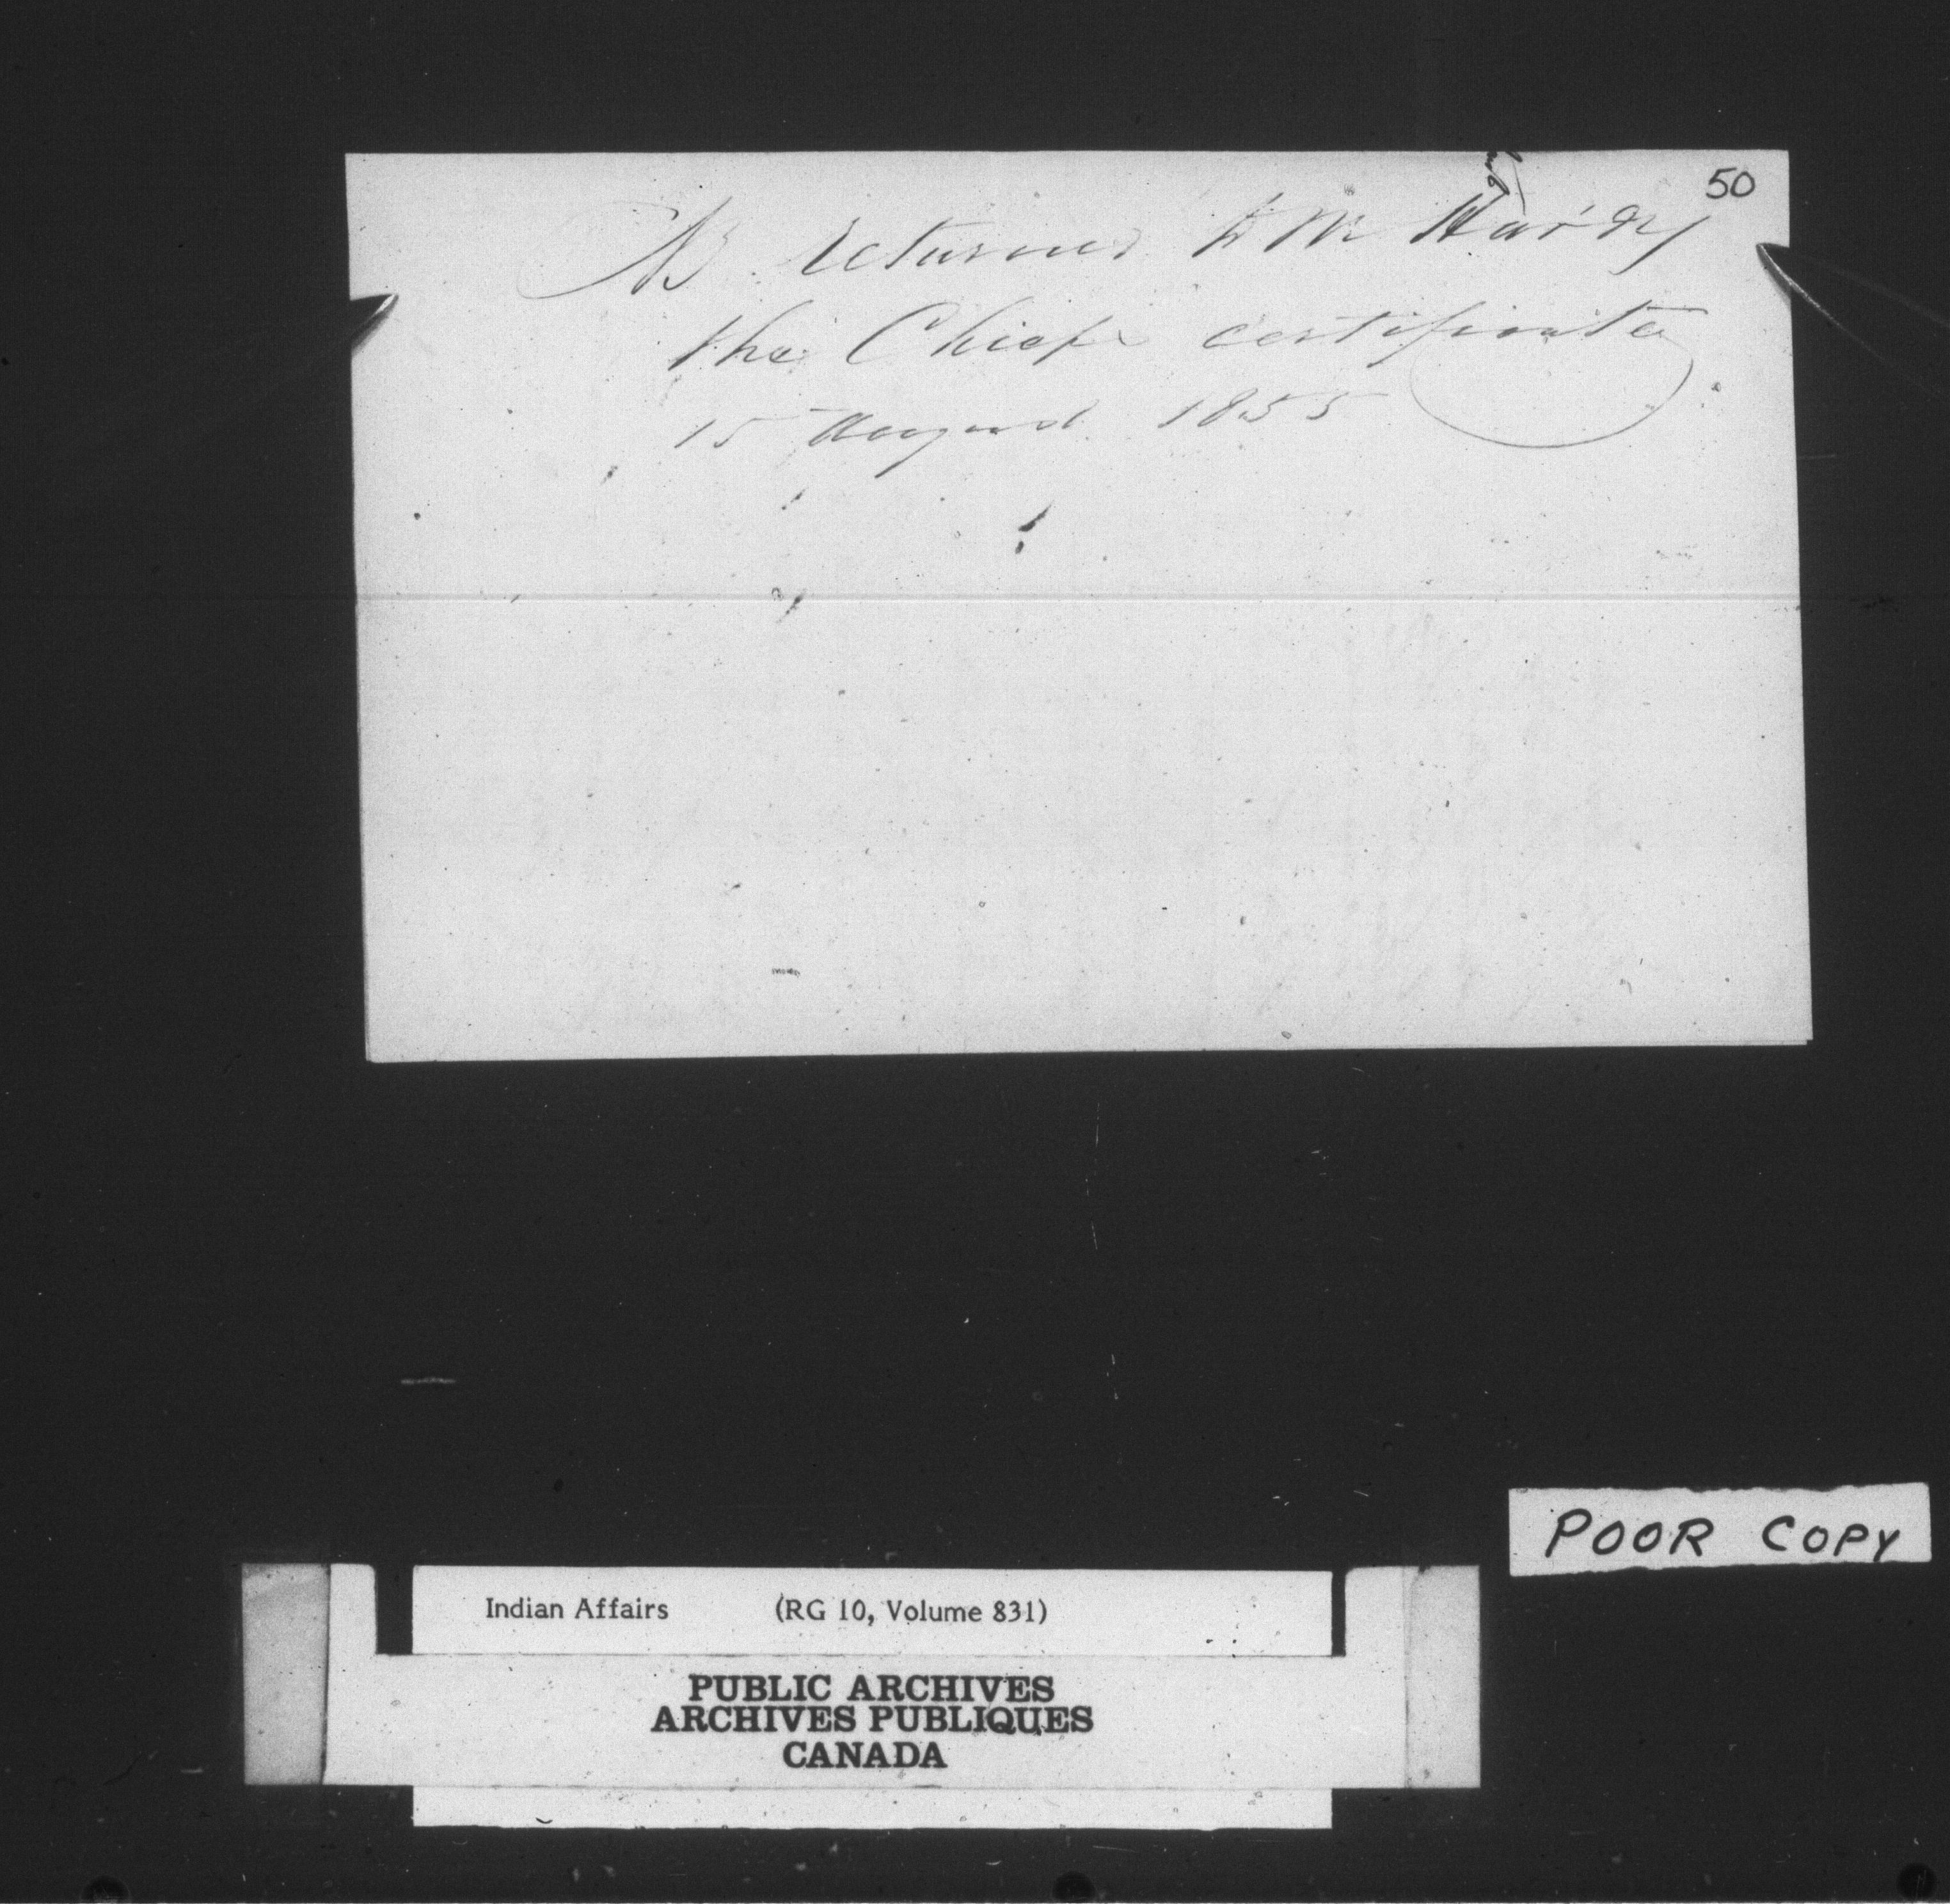 50
NB returned to Mr Hardy
the Chiefs certificate
15 August 1855
POOR COPY
Indian Affairs (RG 10, Volume 831)
PUBLIC ARCHIVES
ARCHIVES PUBLIQUES
CANADA